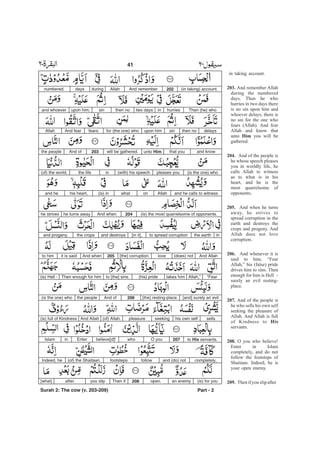 البقرة-٢
41
سيقول-٢
(in taking) account.
202
And remember
Allah
during
days
numbered.
Then (he) who
hurries
in
two days
then no
sin
upon him,
and whoever
delays
then no
sin
upon him
for (one) who
fears.
And fear
Allah
and know
that you
unto Him
will be gathered.
203
And of
the people
(is the one) who
pleases you
(with) his speech
in
the life
(of) the world,
and he calls to witness
Allah
on
what
(is) in
his heart,
and he
(is) the most quarrelsome of opponents.
204
And when
he turns away
he strives
in
the earth
to spread corruption
[in it],
and destroys
the crops
and progeny.
And Allah
(does) not
love
[the corruption].
205
And when
it is said
to him
"Fear
Allah,"
takes him
(his) pride
to [the] sins.
Then enough for him
(is) Hell -
[and] surely an evil
[the] resting-place.
206
And of
the people
(is the one) who
sells
his own self
seeking
pleasure
(of) Allah.
And Allah
(is) full of Kindness
to His servants.
207
O you
who
believe[d]!
Enter
in
Islam
completely,
and (do) not
follow
footsteps
(of) the Shaitaan.
Indeed, he
(is) for you
an enemy
open.
208
Then if
you slip
after
[what]
Surah 2: The cow (v. 203-209)
Part - 2
in taking account.
203. And remember Allah
during the numbered
days. Then he who
hurries in two days there
is no sin upon him and
whoever delays, there is
no sin for the one who
fears (Allah). And fear
Allah and know that
unto Him you will be
gathered.
204. And of the people is
he whose speech pleases
you in worldly life, he
calls Allah to witness
as to what is in his
heart, and he is the
most quarrelsome of
opponents.
205. And when he turns
away, he strives to
spread corruption in the
earth and destroys the
crops and progeny. And
Allah does not love
corruption.
206. And whenever it is
said to him, "Fear
Allah," his (false) pride
drives him to sins. Then
enough for him is Hell -
surely an evil resting-
place.
207. And of the people is
he who sells his own self
seeking the pleasure of
Allah. And Allah is full
of Kindness to His
servants.
208. O you who believe!
Enter in Islam
completely, and do not
follow the footsteps of
Shaitaan. Indeed, he is
your open enemy.
209. Then if you slip after